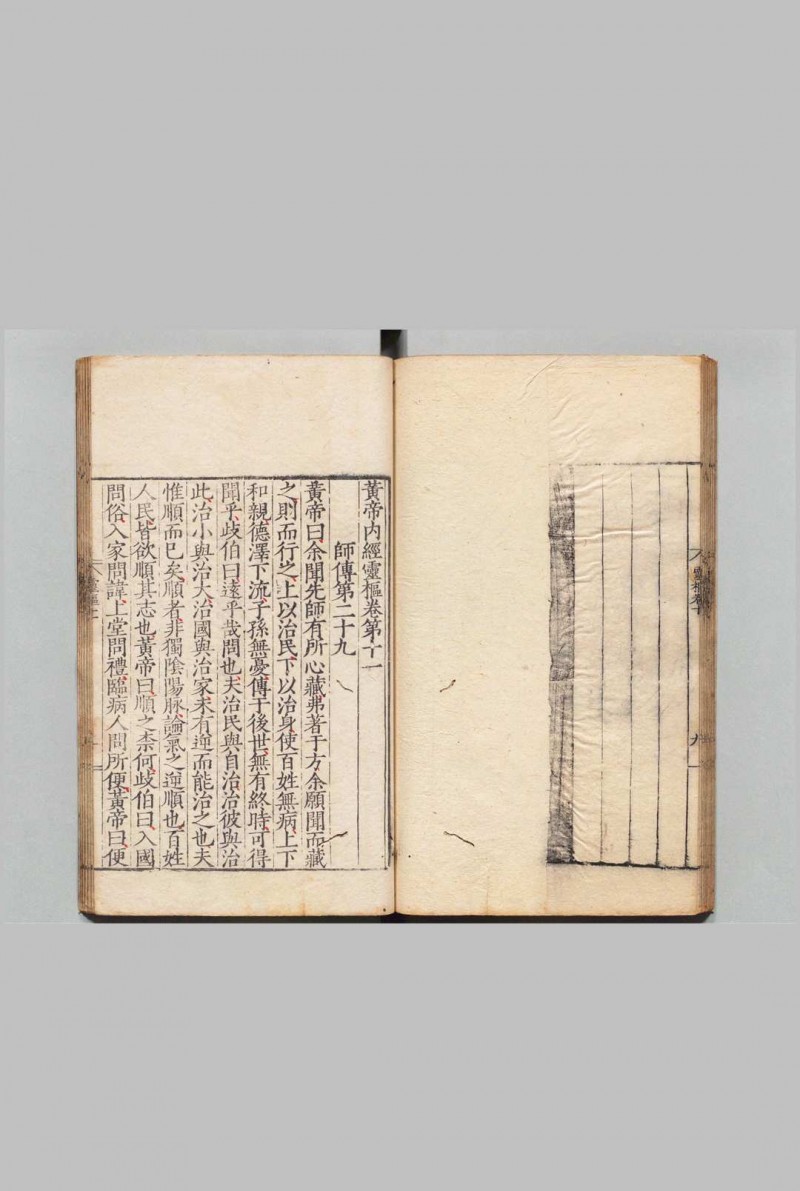 靈樞卷十
九
黃帝内經靈樞卷第十一
師傳第二十九
黃帝曰余聞先師有所心藏弗著于方余願聞而藏
之則而行之上以治民下以治身使百姓無病上下
和親德澤下流子孫無憂傳于後世無有終時可得
聞乎歧伯曰遠乎哉問也夫治民與自治治彼與治
此治小與治大治國與治家未有逆而能治之也夫
惟順而已矣順者非獨陰陽脉論氣之逆順也百姓
人民皆欲順其志也黃帝曰順之柰何歧伯曰入國
問俗入家問諱上堂問禮臨病人問所便黃帝曰便